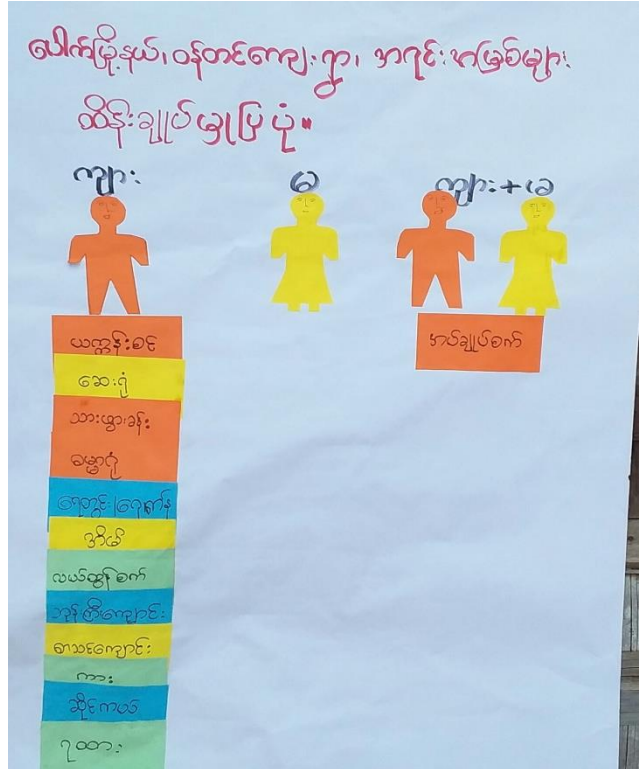 ပေါက်မြို့နယ်၊ ဝန်တင်ကျေးရွာ၊ အရင်းအမြစ်များ
ထိန်းချုပ်မှုပြပုံ။
ကျား
မ
ကျား+မ
ယက္ကန်းစင်
ဆေးရုံ
သားဖွားခန်း
ဓမ္မာရုံ
အိမ်
လယ်ထွန်စက်
ဘုန်းကြီးကျောင်း
စာသင်ကျောင်း
ကား
ဆိုင်ကယ်
ရထား
အပ်ချုပ်စက်